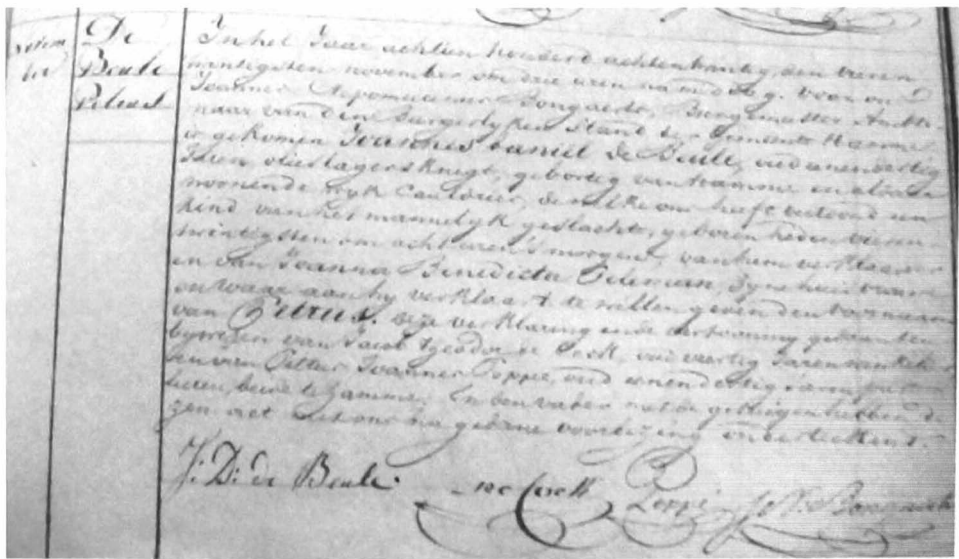 De
Beule
Petrus
In het Jaar achtien honderd achtentwintig, den vieren
twintigsten november om drie uren na middag. Voor on
Joannes Nepomucenus Bongaerts, Burgemeester Ambte
naar van den Burgerlyken Stand der Gemeente Hamme
is gekomen Joannes Daniel de Beule, oud eenendertig
Jaren olieslagersknegt, geboortig van Hamme en aldaer
woonende wyk Cautorier, dewelke ons heeft vertoond een
kind van het mannelyk geslacht, geboren heden vieren
twintigsten om acht uren 's morgens, van hem verklaerer
en van Joanna Benedicta Peleman, zyne huisvrouwe
en waar aan hy verklaart te willen geven den voornaem
van Petrus. deze verklaring ende vertooning gedaen ten
bywezen van Jacob Theodor de Cock, oud veertig Jaren
en van Petrus Joannes Poppe, oud eenendertig Jaren
beide te Hamme. En den vader met de getuigen hebben de
zen act met ons na gedane voorlezing onderteekend.
J: D: de Beule. de Cock Poppe J N Bongaerts